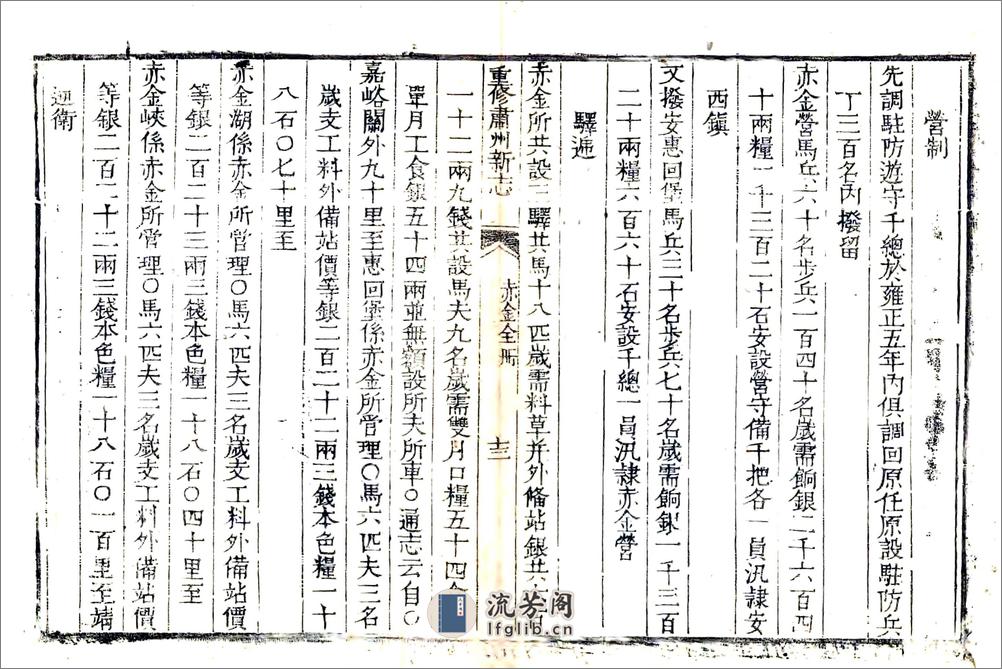 營制
先調駐防遊守千總於雍正五年內俱調回原任原設駐防兵
丁三百名內撥留
赤金營馬兵六十名步兵一百四十名歲需餉銀二千六百四
十兩糧一千三百二十石安設營守備千把各一員汛隸安
西鎮
又撥安惠回堡馬兵三十名步兵七十名歲需餉銀一千三百
二十兩糧六百六十石安設千總一員汛隸赤金營
驛遞
赤金所共設三驛共馬十八匹歲需料草并外備站銀共
重修肅州新志 赤金全冊 十三
一十二兩九錢共設馬夫九名歲需雙月口糧五十四
單月工食銀五十四兩並無額設所夫所車○通志云自
嘉峪關外九十里至惠回堡係赤金所管理○馬六匹夫三名
歲支工料外備站價等銀二百二十二兩三錢本色糧一十
八石○七十里至
赤金湖係赤金所管理○馬六匹夫三名歲支工料外備站價
等銀二百二十三兩三錢本色糧一十八石○四十里至
赤金峽係赤金所管理○馬六匹夫三名歲支工料外備站價
等銀二百二十二兩三錢本色糧一十八石○一百里至靖
逆衛
流芳阁
lfglib.cn